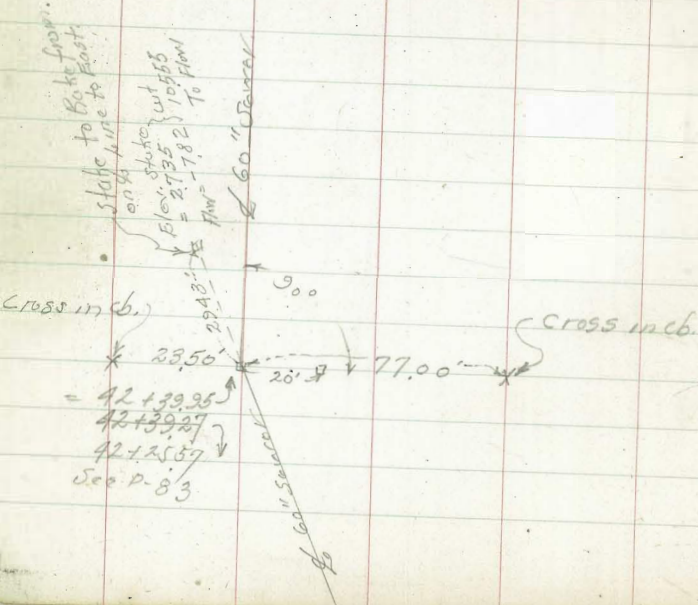 Stake to Bake from.
on ℄ line to East.
Elev. Stake } cut
= 2.735 } 10.555
Flow = -7.82 } To Flow
℄ 60" Sewer
29.43'
90°
Cross in cb.
Cross in cb.
23.50'
20'
77.00'
= 42+39.95
42+39.27
42+25.57
See P-83
℄ 60" Sewer